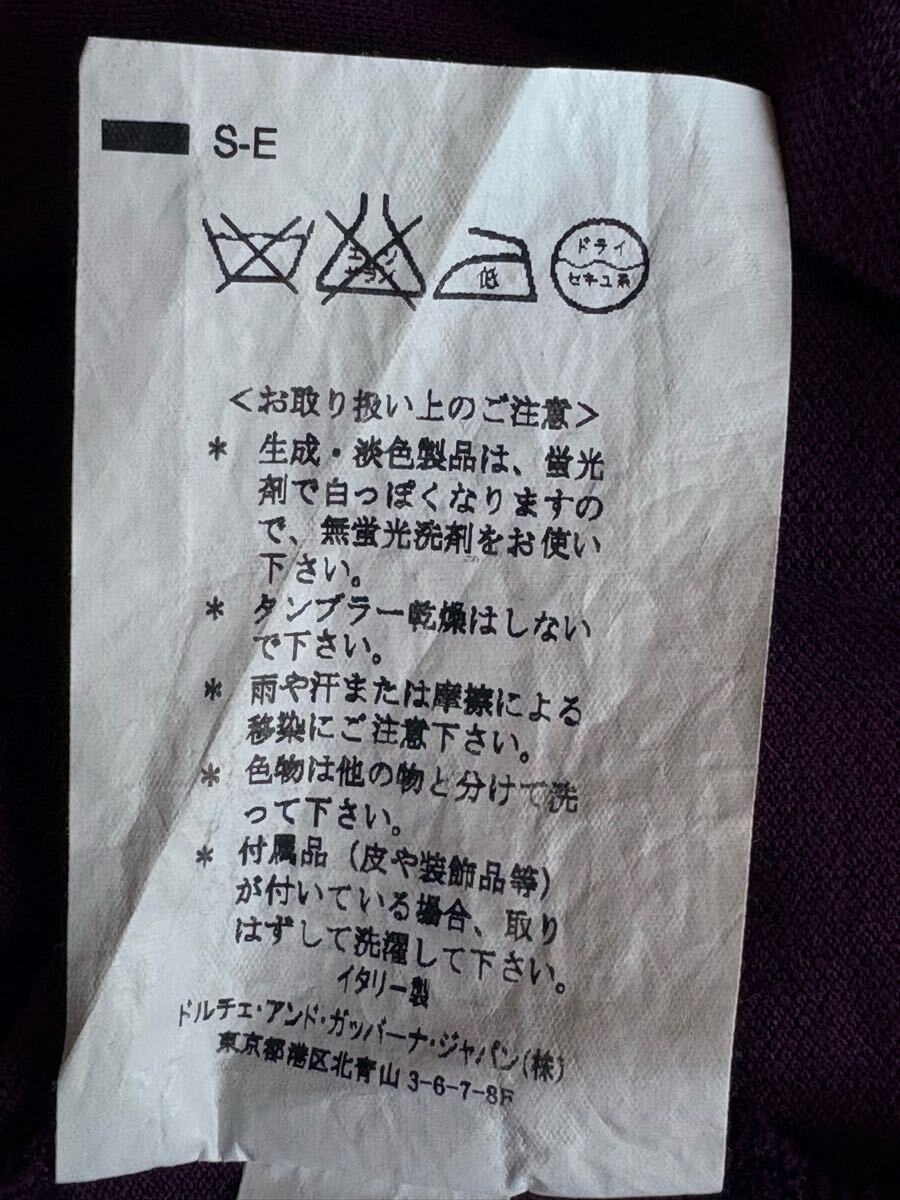 S-E
エンソ
サラシ
低
ドライ
セキユ系
＜お取り扱い上のご注意＞
* 生成・淡色製品は、蛍光
剤で白っぽくなりますの
で、無蛍光洗剤をお使い
下さい。
* タンブラー乾燥はしない
で下さい。
* 雨や汗または摩擦による
移染にご注意下さい。
* 色物は他の物と分けて洗
って下さい。
* 付属品（皮や装飾品等）
が付いている場合、取り
はずして洗濯して下さい。
イタリー製
ドルチェ・アンド・ガッバーナ・ジャパン（株）
東京都港区北青山3-6-7-8F